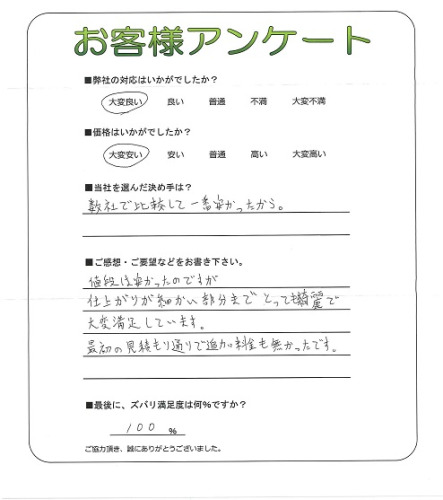 お客様アンケート
■弊社の対応はいかがでしたか？
大変良い 良い 普通 不満 大変不満
■価格はいかがでしたか？
大変安い 安い 普通 高い 大変高い
■当社を選んだ決め手は？
数社で比較して一番安かったから。
■ご感想・ご要望などをお書き下さい。
値段は安かったのですが
仕上がりが細かい部分まで とっても綺麗で
大変満足しています。
最初の見積もり通りで追加料金も無かったです。
■最後に、ズバリ満足度は何%ですか？
100 %
ご協力頂き、誠にありがとうございました。